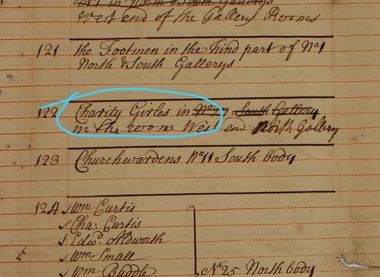 West end of the Gallery Rooms
121 the Footmen in the hind part of No 1
North & South Gallerys
122 Charity Girles in No South Gallery
in the room West end North Gallery
123 Churchwardens No 11 South body
124 Wm Curtis
Cha: Curtis
Edwd Aldworth
Wm Small
Wm Buddle No 25 North body